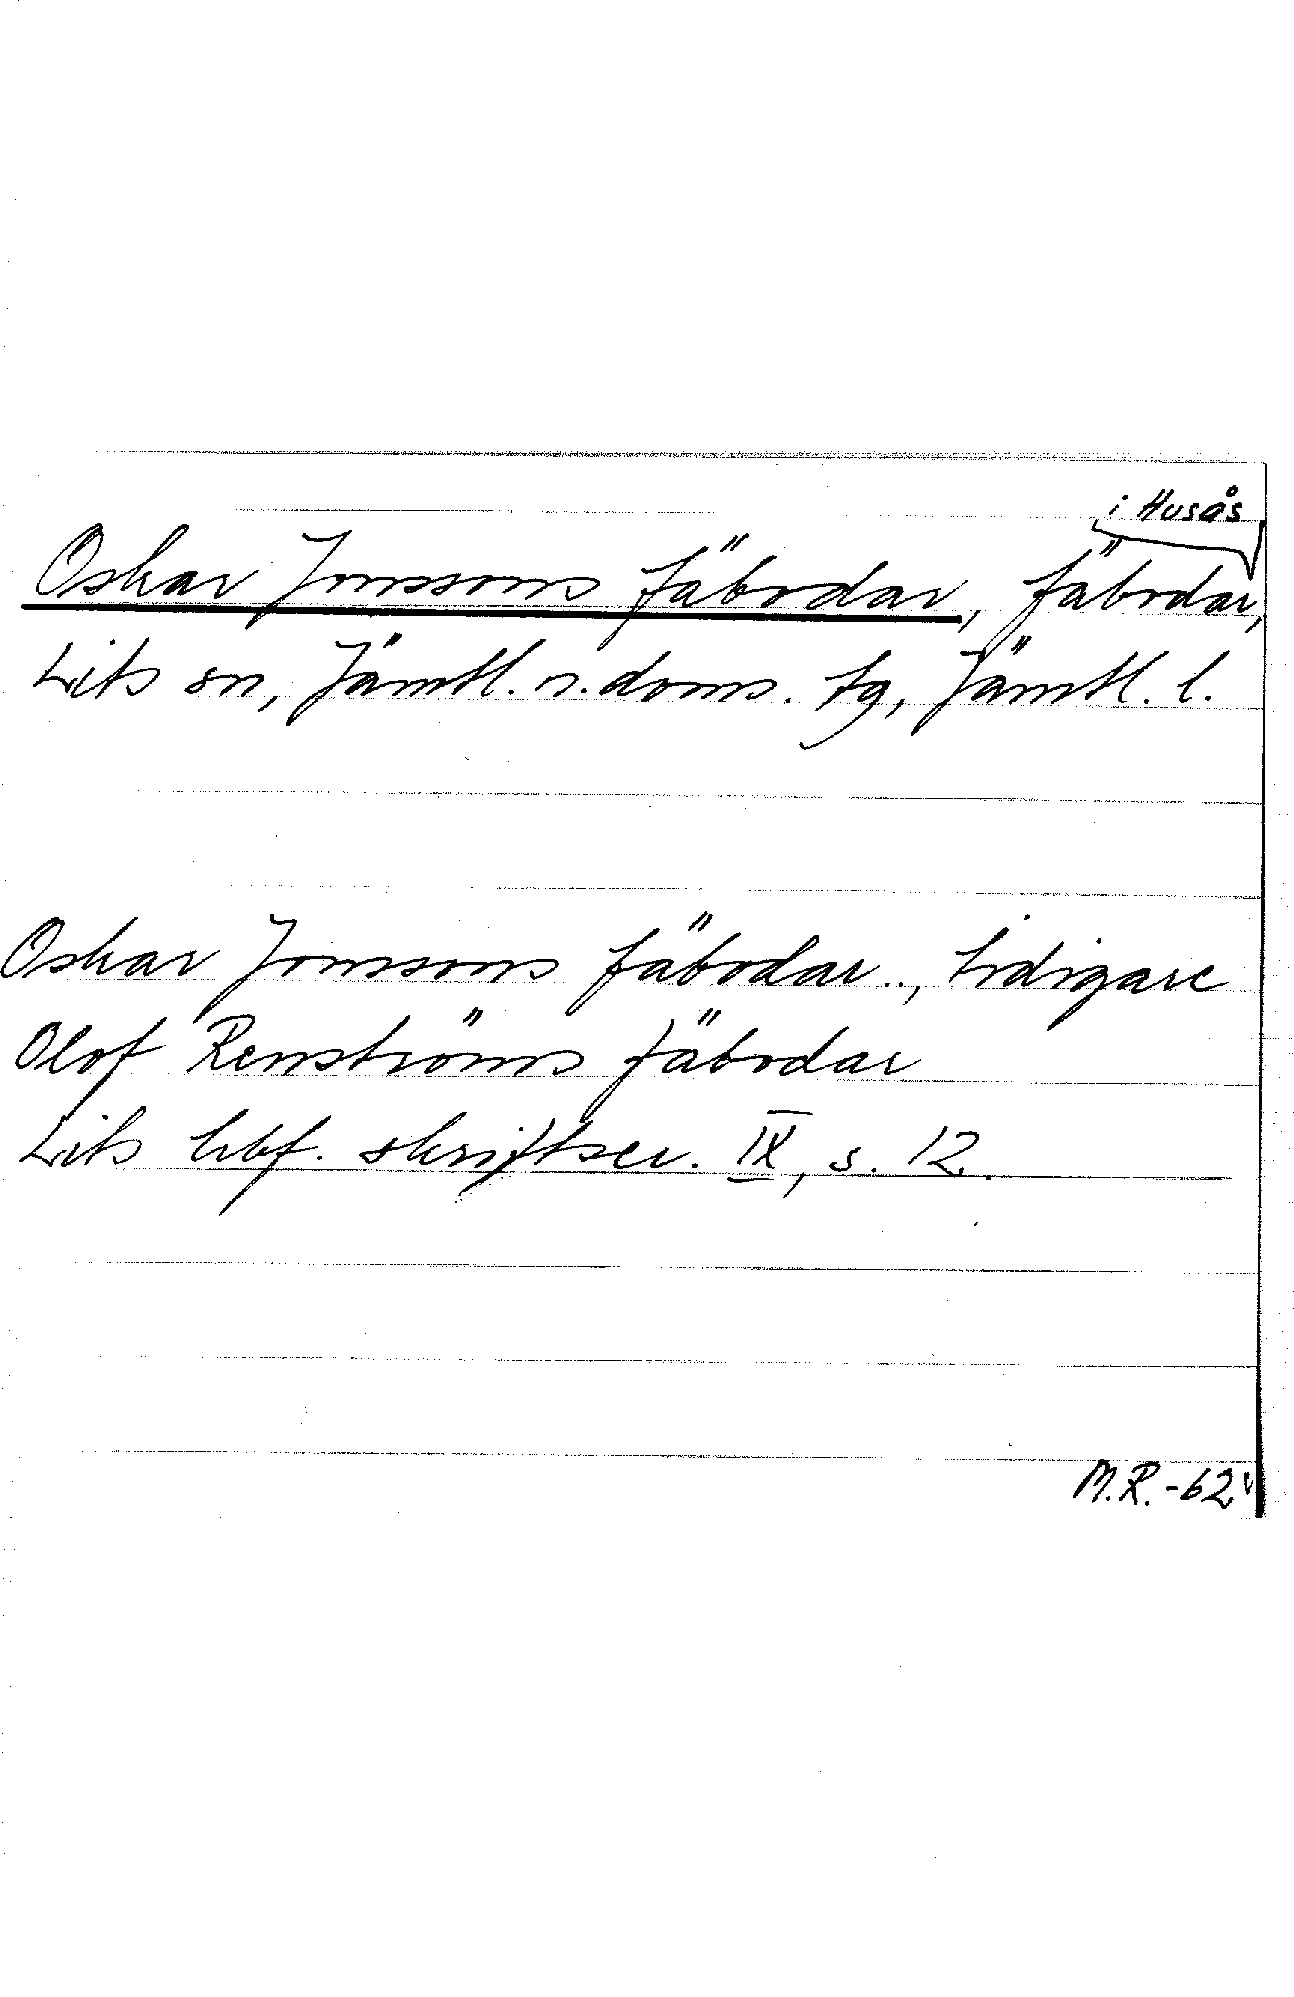 i Husås
Oskar Jonssons fäbodar, fäbodar,
Lits sn, Jämtl. n. doms. tg, Jämtl. l.
Oskar Jonssons fäbodar.., tidigare
Olof Renströms fäbodar
Lits hbf. skriftser. IX, s. 12.
M.R. -62